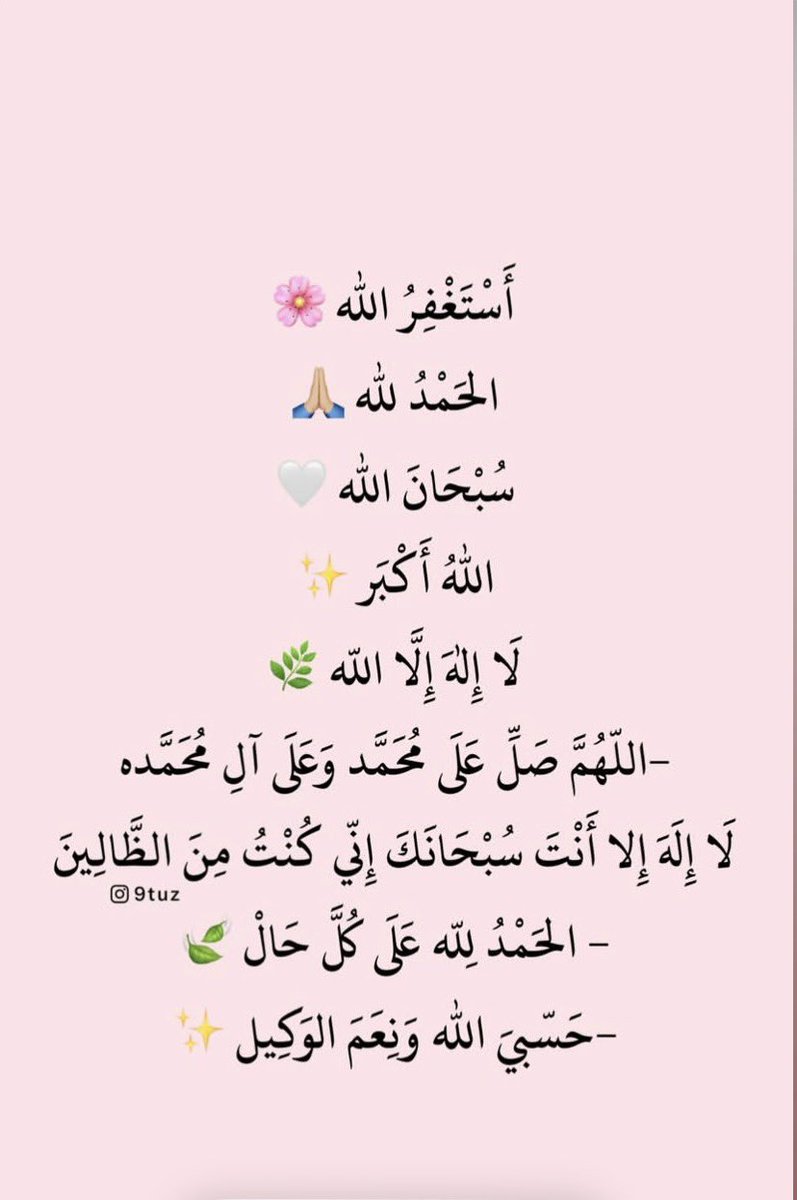 أَسْتَغْفِرُ الله 🌸
الحَمْدُ لله 🙏🏼
سُبْحَانَ الله 🤍
اللهُ أَكْبَر ✨
لَا إِلٰهَ إِلَّا اللّه 🌿
–اللّهُمَّ صَلِّ عَلَى مُحَمَّد وَعَلَى آلِ مُحَمَّده
لَا إِلَهَ إِلا أَنْتَ سُبْحَانَكَ إِنّي كُنْتُ مِنَ الظَّالِينَ
9tuz
– الحَمْدُ لِلّه عَلَى كُلَّ حَالْ 🍃
–حَسّبيَ الله وَنِعَمَ الوَكِيل ✨